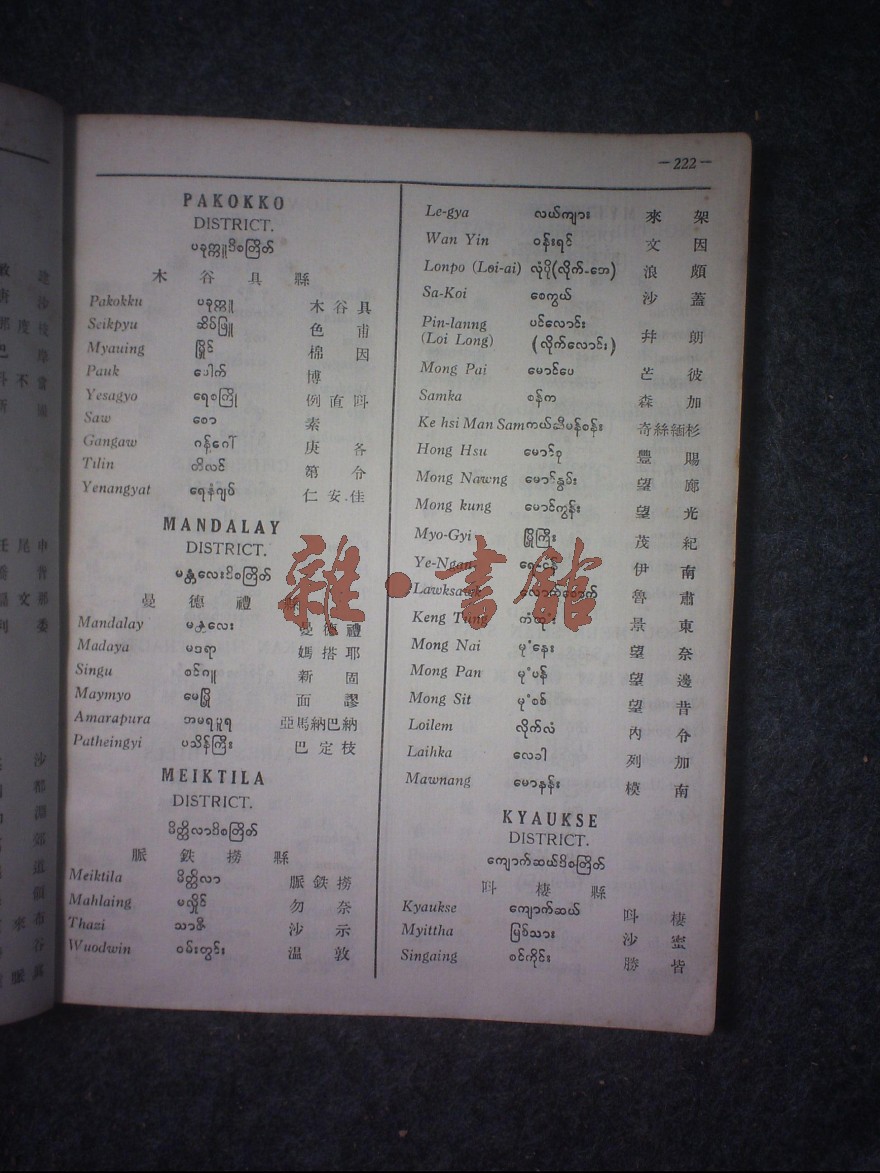 —222—
PAKOKKO
DISTRICT.
ပခုက္ကူဒိစတြိတ်
木谷具縣
Pakokku ပခုက္ကူ 木谷具
Seikpyu ဆိပ်ဖြူ 色甫
Myauing မြိုင် 棉因
Pauk ပေါက် 博
Yesagyo ရေစကြို 例直呌
Saw စော 素
Gangaw ဂန့်ဂေါ် 庚各
Tilin ထီလင် 第令
Yenangyat ရေနံဂျပ် 仁安佳
MANDALAY
DISTRICT.
မန္တလေးဒိစတြိတ်
曼德禮縣
Mandalay မန္တလေး 曼德禮
Madaya မဒရာ 媽搭耶
Singu စဉ်ဂူ 新固
Maymyo မေမြို့ 面謬
Amarapura အမရပူရ 亞馬納巴納
Patheingyi ပသိန်ကြီး 巴定枝
MEIKTILA
DISTRICT.
မိတ္ထိလာဒိစတြိတ်
脈鉄撈縣
Meiktila မိတ္ထိလာ 脈鉄撈
Mahlaing မလှိုင် 勿奈
Thazi သာဇီ 沙示
Wuodwin ဝမ်းတွင်း 温敦
Le-gya လယ်ကျား 來架
Wan Yin ဝန်းရင် 文因
Lonpo (Loi-ai) လုံပို(လိုက်-ဘေ) 浪頗
Sa-Koi စေကွယ် 沙蓋
Pin-lanng ပင်လောင်း 井朗
(Loi Long) (လိုက်လောင်း)
Mong Pai မောင်ပေ 芒彼
Samka စန်က 森加
Ke hsi Man Sam ကယ်ဆီမန်စန်း 奇絲緬杉
Hong Hsu မောင်စု 豐賜
Mong Nawng မောင်နွမ်း 望廊
Mong kung မောင်ကွန်း 望光
Myo-Gyi မြို့ကြီး 茂紀
Ye-Ngan 伊南
Lawksawk 魯肅
Keng Tung 景東
Mong Nai မုံနေး 望奈
Mong Pan မုံပန် 望邊
Mong Sit မုံစစ် 望昔
Loilem လိုက်လံ 內令
Laihka လေခါ 列加
Mawnang မောနန်း 模南
KYAUKSE
DISTRICT.
ကျောက်ဆယ်ဒိစတြိတ်
呌棲縣
Kyaukse ကျောက်ဆယ် 呌棲
Myittha မြစ်သား 沙蜜
Singaing စင်ကိုင်း 勝皆
雜·書館